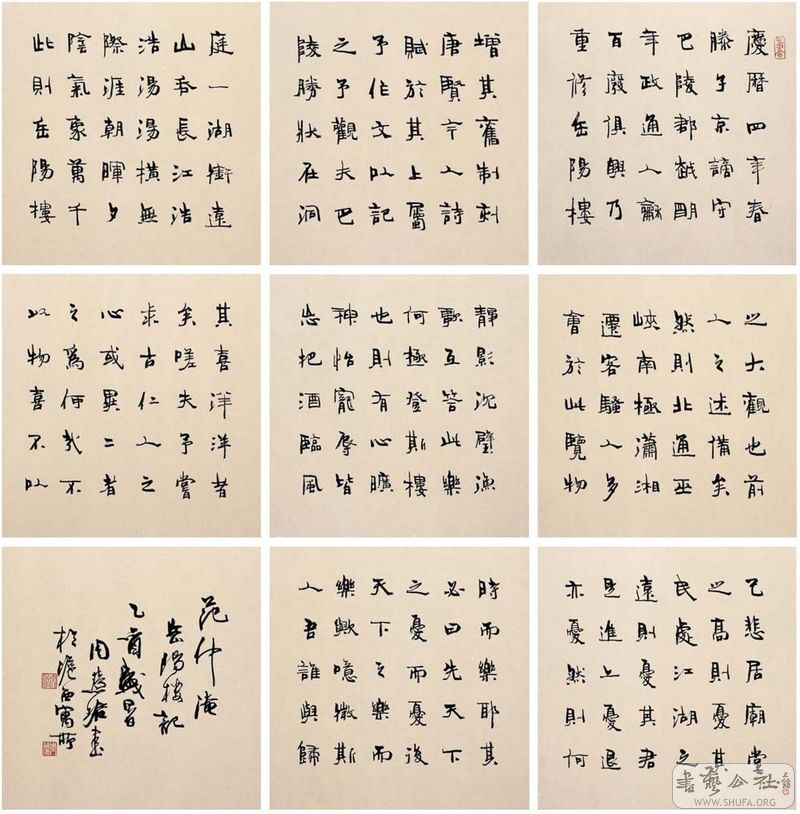 慶曆四年春
滕子京謫守
巴陵郡越明
年政通人龢
百廢俱興乃
重修岳陽樓
增其舊制刻
唐賢今人詩
賦於其上屬
予作文以記
之予觀夫巴
陵勝狀在洞
庭一湖銜遠
山吞長江浩
浩湯湯橫無
際涯朝暉夕
陰氣象萬千
此則岳陽樓
之大觀也前
人之述備矣
然則北通巫
峽南極瀟湘
遷客騷人多
會於此覽物
靜影沉璧漁
歌互答此樂
何極登斯樓
也則有心曠
神怡寵辱皆
忘把酒臨風
其喜洋洋者
矣嗟夫予嘗
求古仁人之
心或異二者
之為何哉不
以物喜不以
己悲居廟堂
之高則憂其
民處江湖之
遠則憂其君
是進亦憂退
亦憂然則何
時而樂耶其
必曰先天下
之憂而憂後
天下之樂而
樂歟噫微斯
人吾誰與歸
范仲淹
岳陽樓記
乙酉盛暑
周慧珺書
於滬西寓所
書藝公社
WWW.SHUFA.ORG